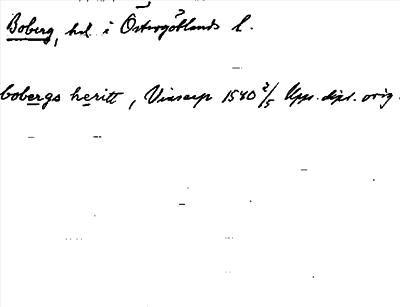 Boberg, hd i Östergötlands l.
bobergs heritt, Vinsarp 1540 2/5 Upps. dipl. orig.